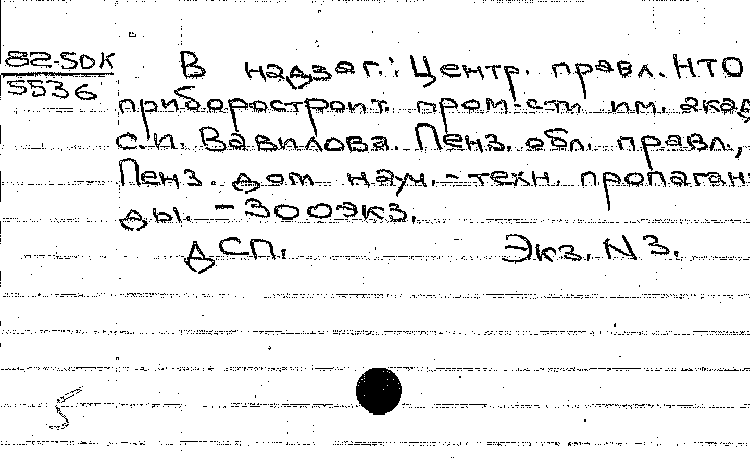 82-5ДК
5536
В надзаг.: Центр. правл. НТО
приборостроит. пром-сти им. акад
С.И. Вавилова. Пенз. обл. правл.,
Пенз. дом науч.-техн. пропаган-
ды. - 300 экз.
ДСП. Экз. N 3.